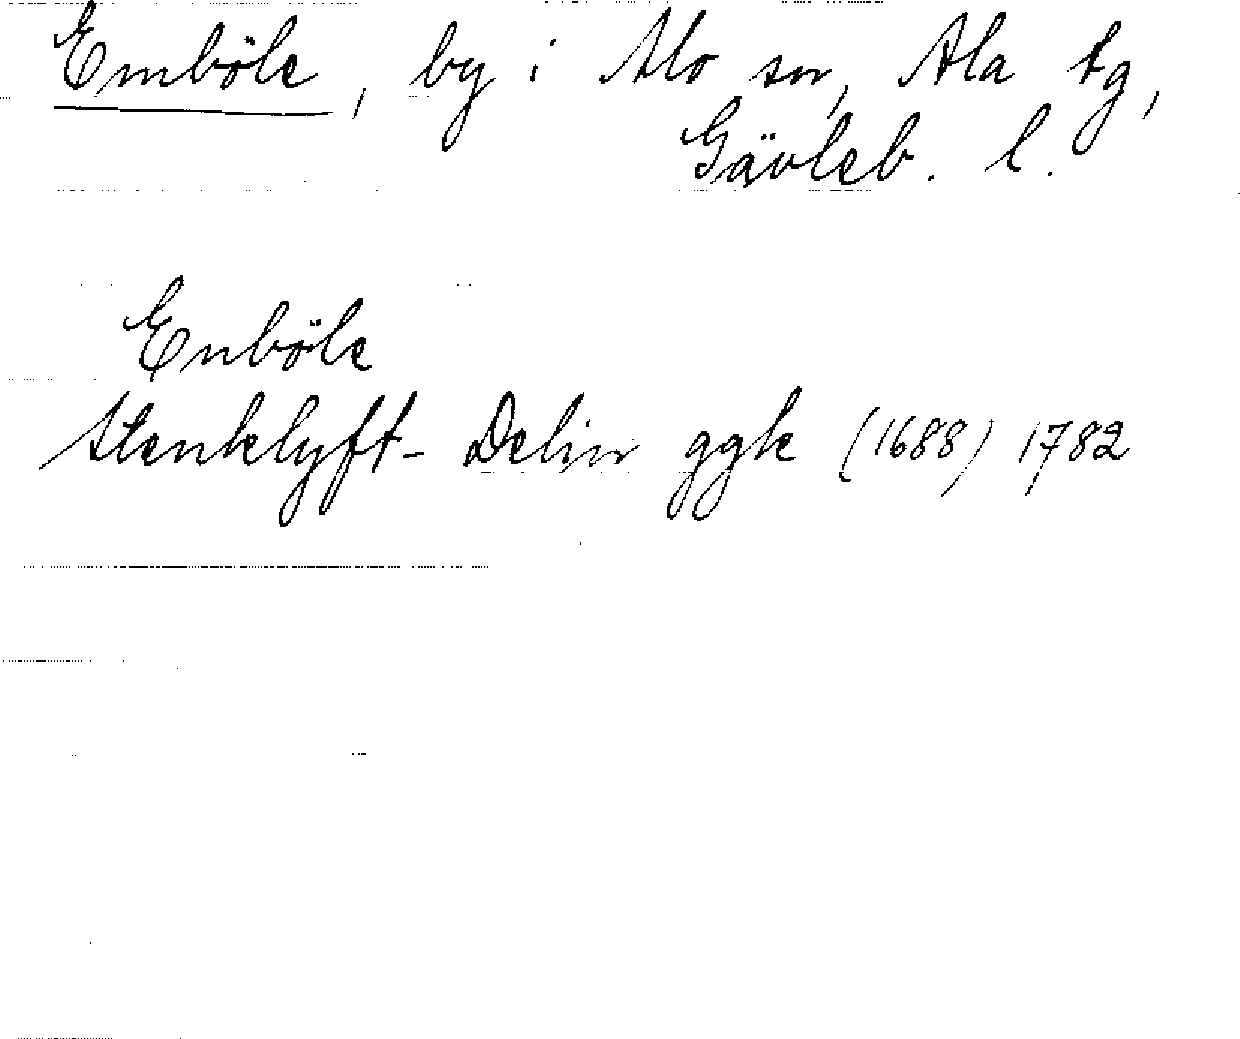 Emböle, by i Mo sn, Ala tg,
Gävleb. l.
Enböle
Stenklyft- Delin ggk (1688) 1782